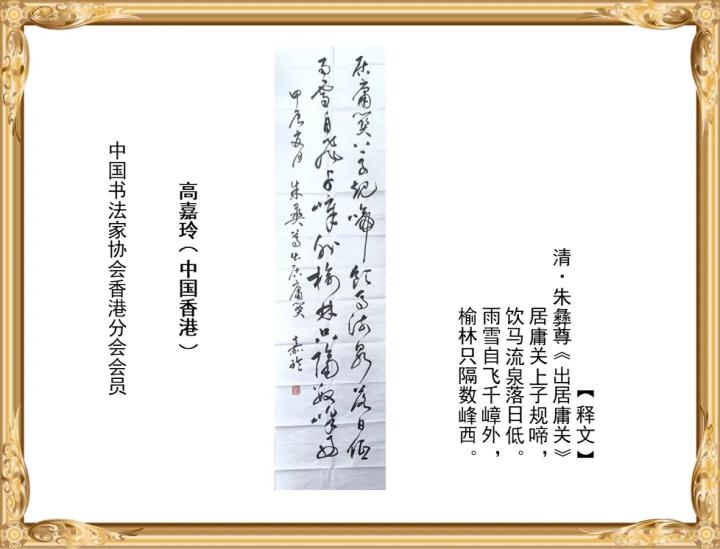 【释文】
清·朱彝尊《出居庸关》
居庸关上子规啼，
饮马流泉落日低。
雨雪自飞千嶂外，
榆林只隔数峰西。
居庸關上子規啼飲馬流泉落日低
雨雪自飛千嶂外榆林只隔數峰西
甲辰夏月 朱彝尊出居庸關 嘉玲
高嘉玲（中国香港）
中国书法家协会香港分会会员